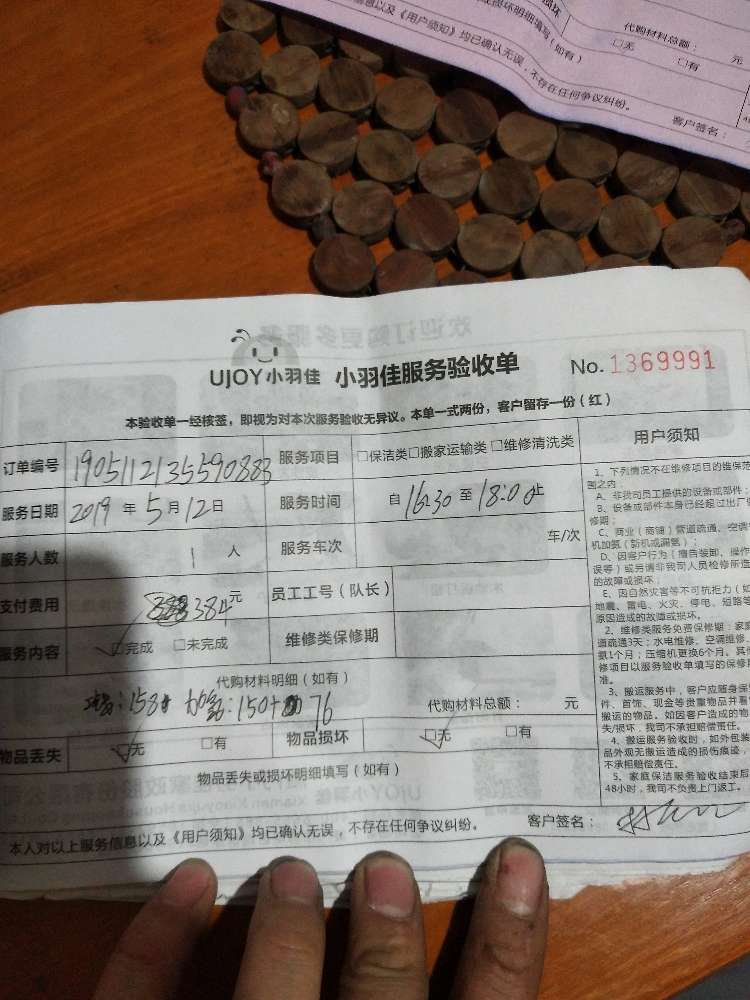 代购材料总额： 元
息以及《用户须知》均已确认无误，不存在任何争议纠纷。
□无 □有
客户签名：
UJOY小羽佳 小羽佳服务验收单 No.1369991
本验收单一经核签，即视为对本次服务验收无异议。本单一式两份，客户留存一份（红）
订单编号 1905112135590883 服务项目 □保洁类□搬家运输类□维修清洗类
服务日期 2019年5月12日 服务时间 自16:30至18:00止
服务人数 1人 服务车次 车/次
支付费用 384元 员工工号（队长）
服务内容 □完成 □未完成 维修类保修期
代购材料明细（如有）
:158+ 加氨:150+76 代购材料总额： 元
物品丢失 □无 □有 物品损坏 □无 □有
物品丢失或损坏明细填写（如有）
本人对以上服务信息以及《用户须知》均已确认无误，不存在任何争议纠纷。 客户签名：
用户须知
1、下列情况不在维修项目的维保范
围之内：
A、非我司员工提供的设备或部件；
B、设备或部件本身已经超过出厂
修期；
C、商业（商铺）管道疏通、空调
机加氨（新机或漏氨）；
D、因客户行为（擅自装卸、操作
误等）或另请非我司人员检修所造
的故障或损坏；
E、因自然灾害等不可抗拒力（如
地震、雷电、火灾、停电、短路等
原因造成的故障或损坏。
2、维修类服务免费保修期：家庭
道疏通3天；水电维修、空调维修、
氨1个月；压缩机更换6个月。其
修项目以服务验收单填写的保修
准。
3、搬运服务中，客户应随身保
件、首饰、现金等贵重物品并看
搬运的物品。如因客户造成的物
失/损坏，我司不承担赔偿责任。
4、搬运服务验收时，如外包装
品外观无搬运造成的损伤痕迹，
不承担赔偿责任。
5、家庭保洁服务验收结束后
48小时，我司不负责上门返工。